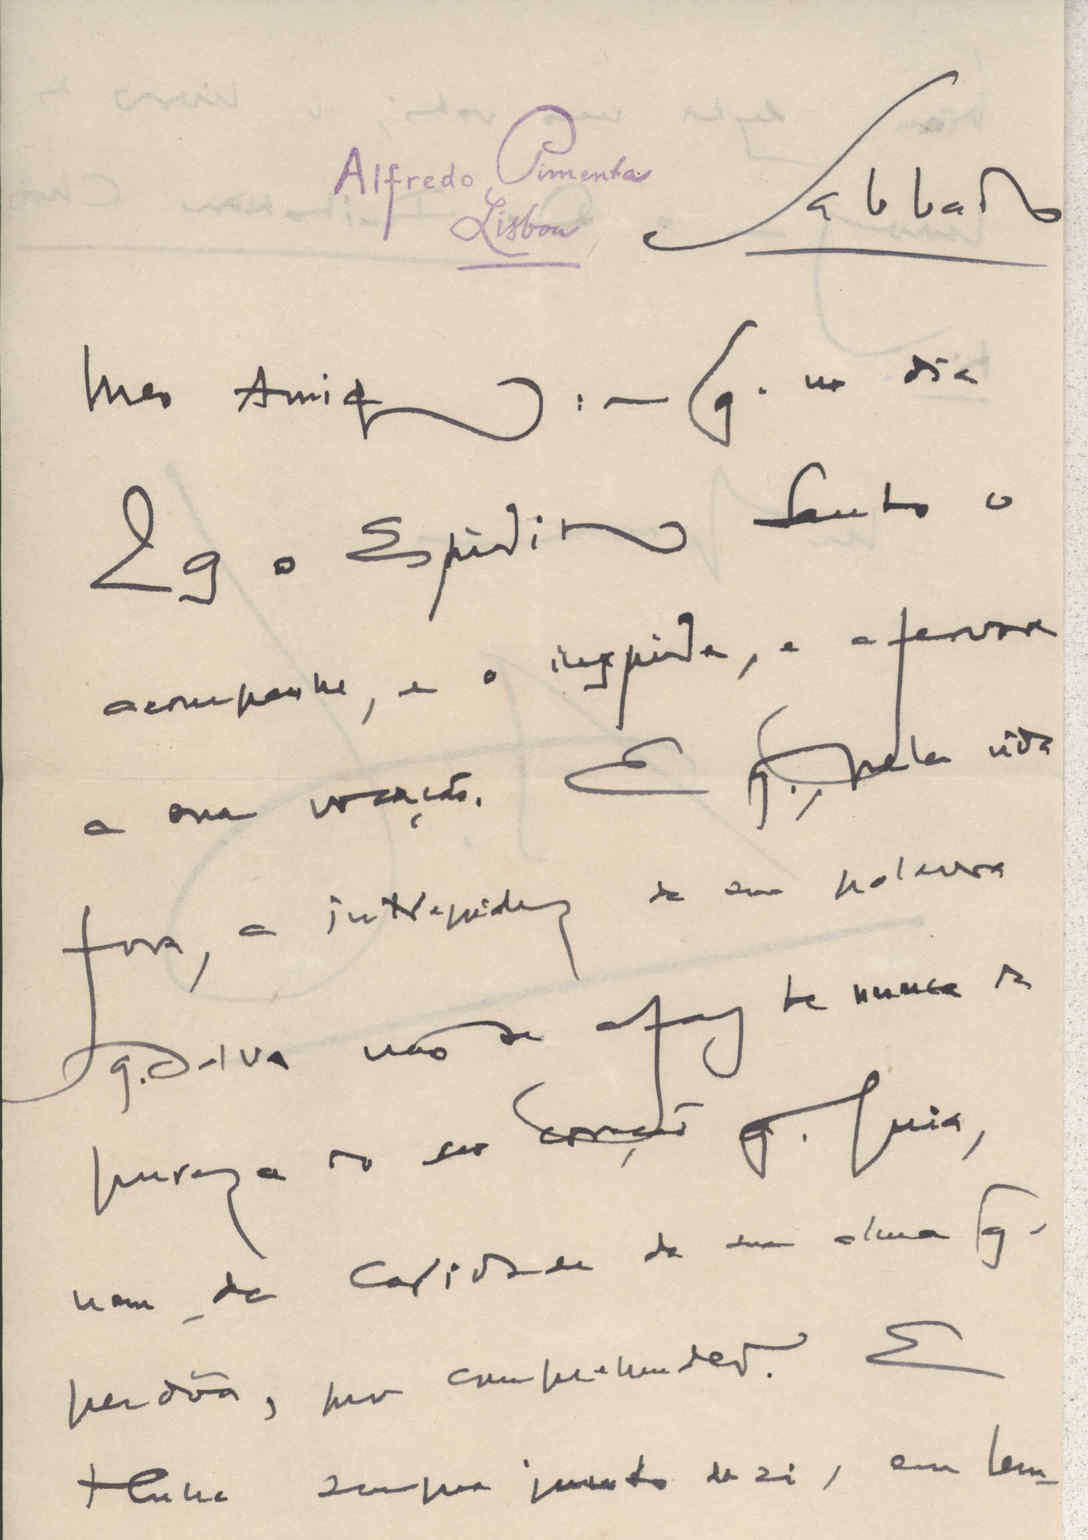 Alfredo Pimenta
Lisboa
Sabbado
Meu Amigo: — q. no dia
29 o Espirito Santo o
acompanhe, e o inspire, e afervore
a sua vocação. E q., pela vida
fora, a intrepidez da sua palavra
q. salva não se afaste nunca da
pureza do seu coração q. guia,
nem da Caridade da sua alma q.
perdôa, por comprehender. E
tenha sempre junto de si, em lem-